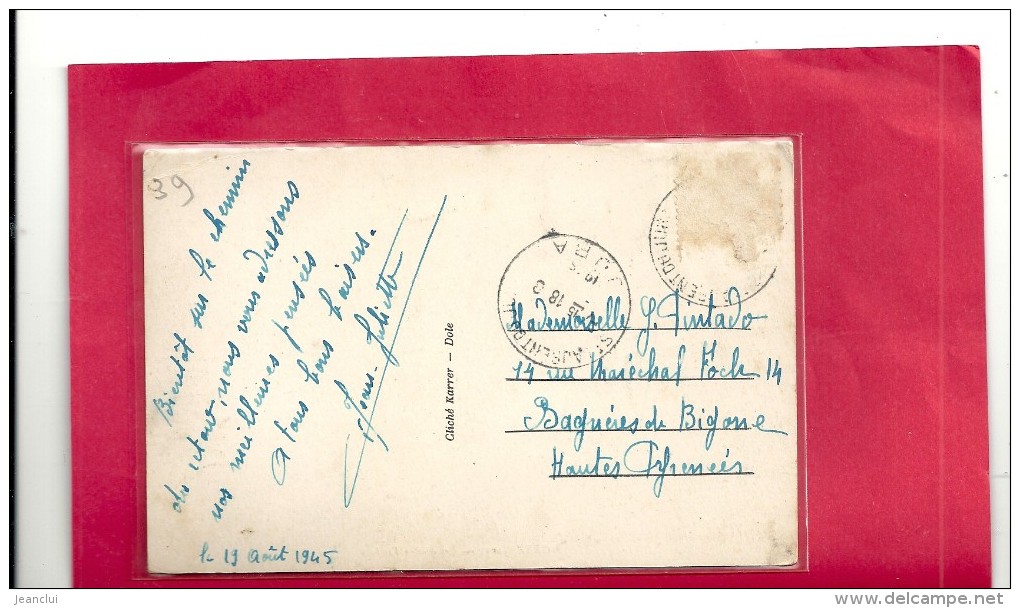 39
Bientôt sur le chemin
du retour, nous vous adressons
nos meilleures pensées
à tous bons baisers.
Jean-Juliette
le 19 Août 1945
Cliché Karrer — Dole
JURA
18
Mademoiselle J. Pintado
14 rue Maréchal Foch 14
Bagnères de Bigorre
Hautes Pyrénées
jeanclui
www.delcampe.net